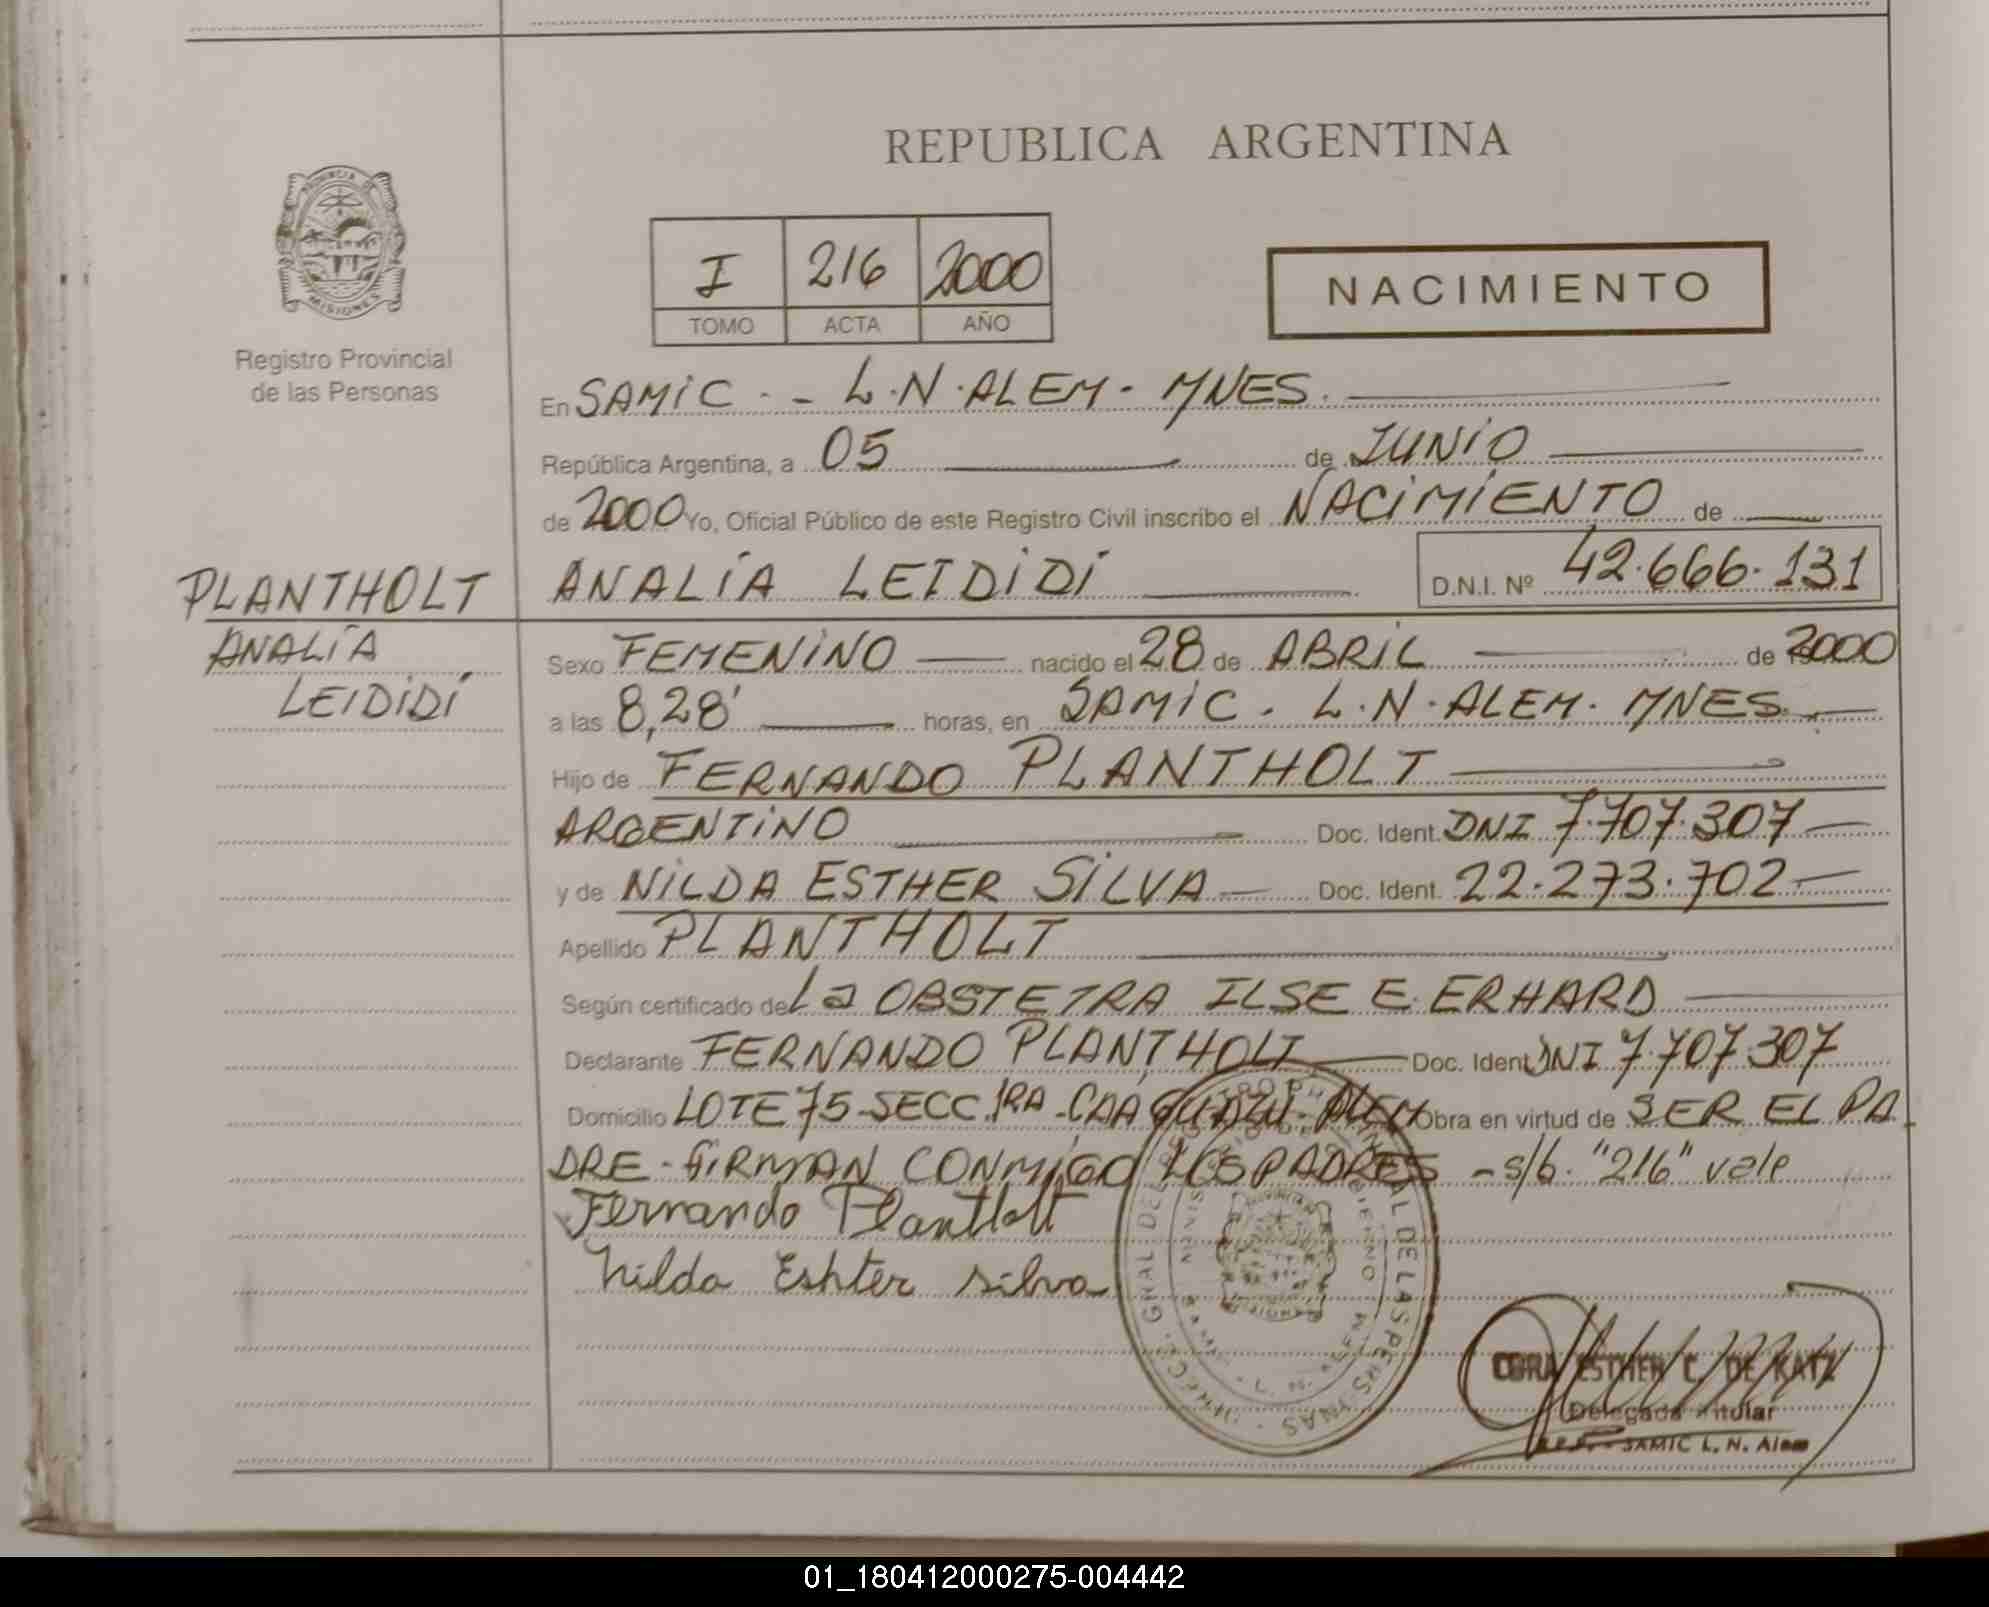 REPUBLICA ARGENTINA
PROVINCIA DE MISIONES
Registro Provincial
de las Personas
I 216 2000
TOMO ACTA AÑO
NACIMIENTO
En SAMIC. - L.N.ALEM - MNES.
República Argentina, a 05 de JUNIO
de 2000 Yo, Oficial Público de este Registro Civil inscribo el NACIMIENTO de
PLANTHOLT
ANALÍA
LEIDIDÍ
ANALÍA LEIDIDÍ D.N.I. Nº 42.666.131
Sexo FEMENINO nacido el 28 de ABRIL de 2000
a las 8,28' horas, en SAMIC. L.N.ALEM. MNES.
Hijo de FERNANDO PLANTHOLT
ARGENTINO Doc. Ident. DNI 7.707.307
y de NILDA ESTHER SILVA Doc. Ident. 22.273.702
Apellido PLANTHOLT
Según certificado de La OBSTETRA ILSE E. ERHARD
Declarante FERNANDO PLANTHOLT Doc. Ident. DNI 7.707.307
Domicilio LOTE 75-SECC.1RA-CAA GUAZU-ALEM Obra en virtud de SER EL PA
DRE - FIRMAN CONMIGO LOS PADRES - s/b. "216" vale
Fernando Plantholt
Nilda Eshter silva
ESTHER C. DE KATZ
Delegada Titular
R.P.P. - SAMIC L. N. Alem
01_180412000275-004442